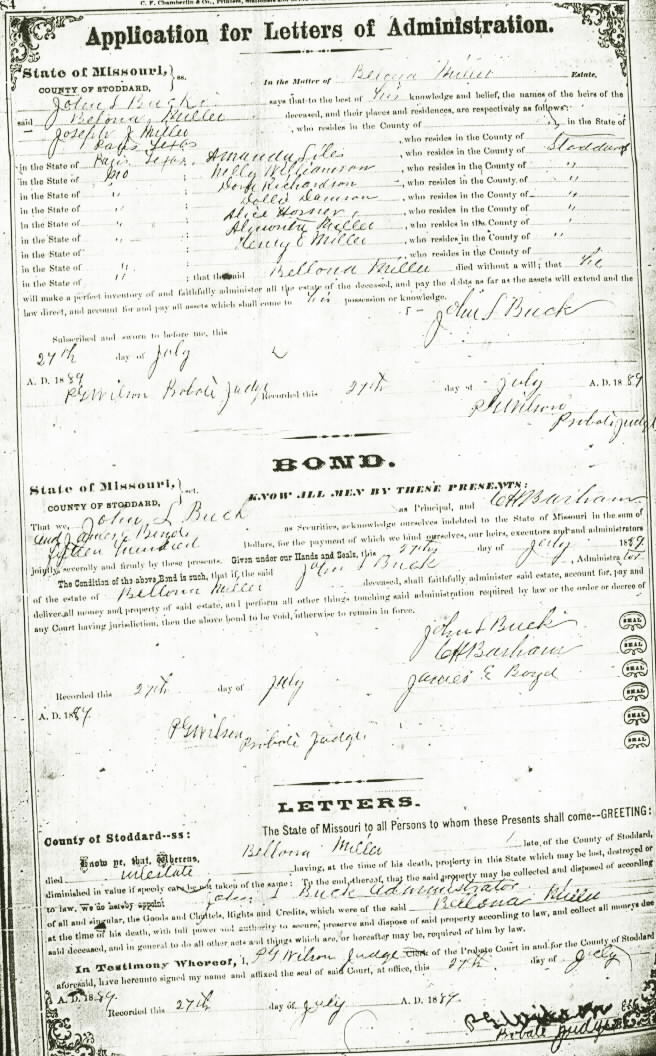 84
C. F. Chamberlin & Co., Printers, Stationers and
Application for Letters of Administration.
State of Missouri, } ss.
COUNTY OF STODDARD,
In the Matter of Belona Miller Estate.
John L Buck says that to the best of his knowledge and belief, the names of the heirs of the
said Belona Miller deceased, and their places and residences, are respectively as follows:
Joseph J Miller , who resides in the County of " in the State of
Paris Texas , who resides in the County of
in the State of Paris Texas ; Amanda Liles , who resides in the County of Stoddard
in the State of Mo ; Nelly Williamson , who resides in the County of "
in the State of " ; Dora Richardson , who resides in the County of "
in the State of " ; Dollie Dawson , who resides in the County of "
in the State of " ; Alice Horner , who resides in the County of "
in the State of " ; Miller , who resides in the County of "
in the State of " ; Henry E Miller , who resides in the County of "
in the State of , who resides in the County of
in the State of " ; that the said Bellona Miller died without a will; that he
will make a perfect inventory of and faithfully administer all the estate of the deceased, and pay the debts as far as the assets will extend and the
law direct, and account for and pay all assets which shall come to his possession or knowledge.
John L Buck
Subscribed and sworn to before me, this
27th day of July
A. D. 1889
P G Wilson Probate Judge Recorded this 27th day of July A. D. 1889
P G Wilson
Probate Judge
BOND.
State of Missouri, } sct.
COUNTY OF STODDARD,
KNOW ALL MEN BY THESE PRESENTS:
That we, John L Buck as Principal, and C H Barham
and James E Boyd as Securities, acknowledge ourselves indebted to the State of Missouri in the sum of
fifteen hundred Dollars, for the payment of which we bind ourselves, our heirs, executors and administrators
jointly, severally and firmly by these presents. Given under our Hands and Seals, this 27th day of July 1889
The Condition of the above Bond is such, that if the said John L Buck , Administrator
of the estate of Bellona Miller deceased, shall faithfully administer said estate, account for, pay and
deliver all money and property of said estate, and perform all other things touching said administration required by law or the order or decree of
any Court having jurisdiction, then the above bond to be void, otherwise to remain in force.
John L Buck SEAL
C H Barham SEAL
James E Boyd SEAL
Recorded this 27th day of July SEAL
A. D. 1889. SEAL
P G Wilson Probate Judge SEAL
LETTERS.
County of Stoddard--ss:
The State of Missouri to all Persons to whom these Presents shall come--GREETING:
Know ye, that, Whereas, Bellona Miller late, of the County of Stoddard,
died intestate , having, at the time of his death, property in this State which may be lost, destroyed or
diminished in value if speedy care be not taken of the same: To the end, therefor, that the said property may be collected and disposed of according
to law, we do hereby appoint John L Buck Administrator
of all and singular, the Goods and Chattels, Rights and Credits, which were of the said Bellona Miller
at the time of his death, with full power and authority to secure, preserve and dispose of said property according to law, and collect all moneys due
said deceased, and in general to do all other acts and things which are, or hereafter may be, required of him by law.
In Testimony Whereof, I, P G Wilson Judge Clerk of the Probate Court in and for the County of Stoddard
aforesaid, have hereunto signed my name and affixed the seal of said Court, at office, this 27th day of July
A. D. 1889.
Recorded this 27th day of July A. D. 1889.
P G Wilson
Probate Judge